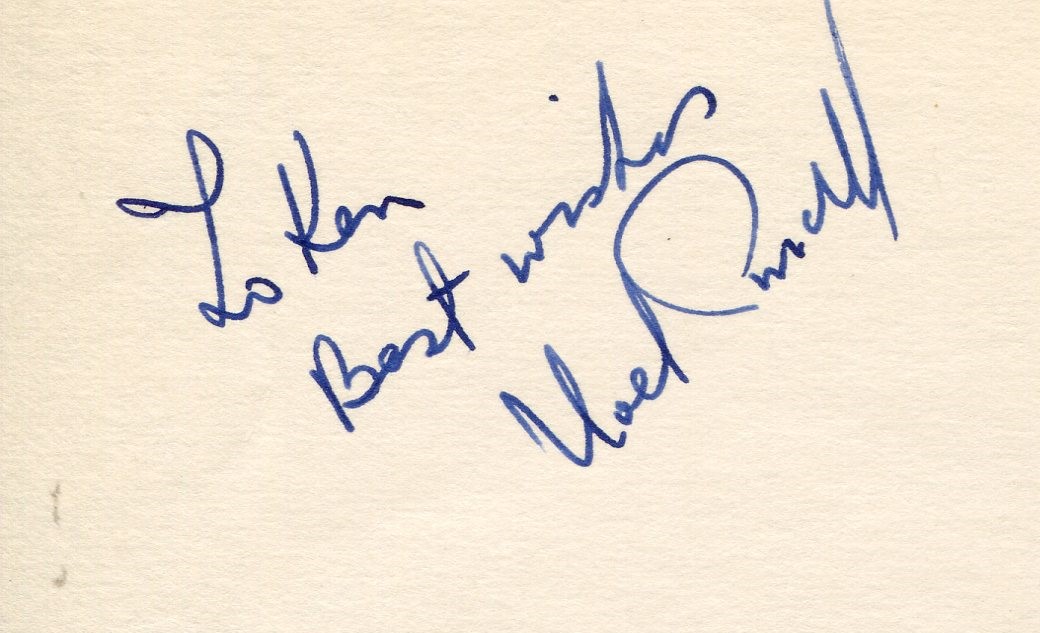 To Ken
Best wishes
Noel Purcell